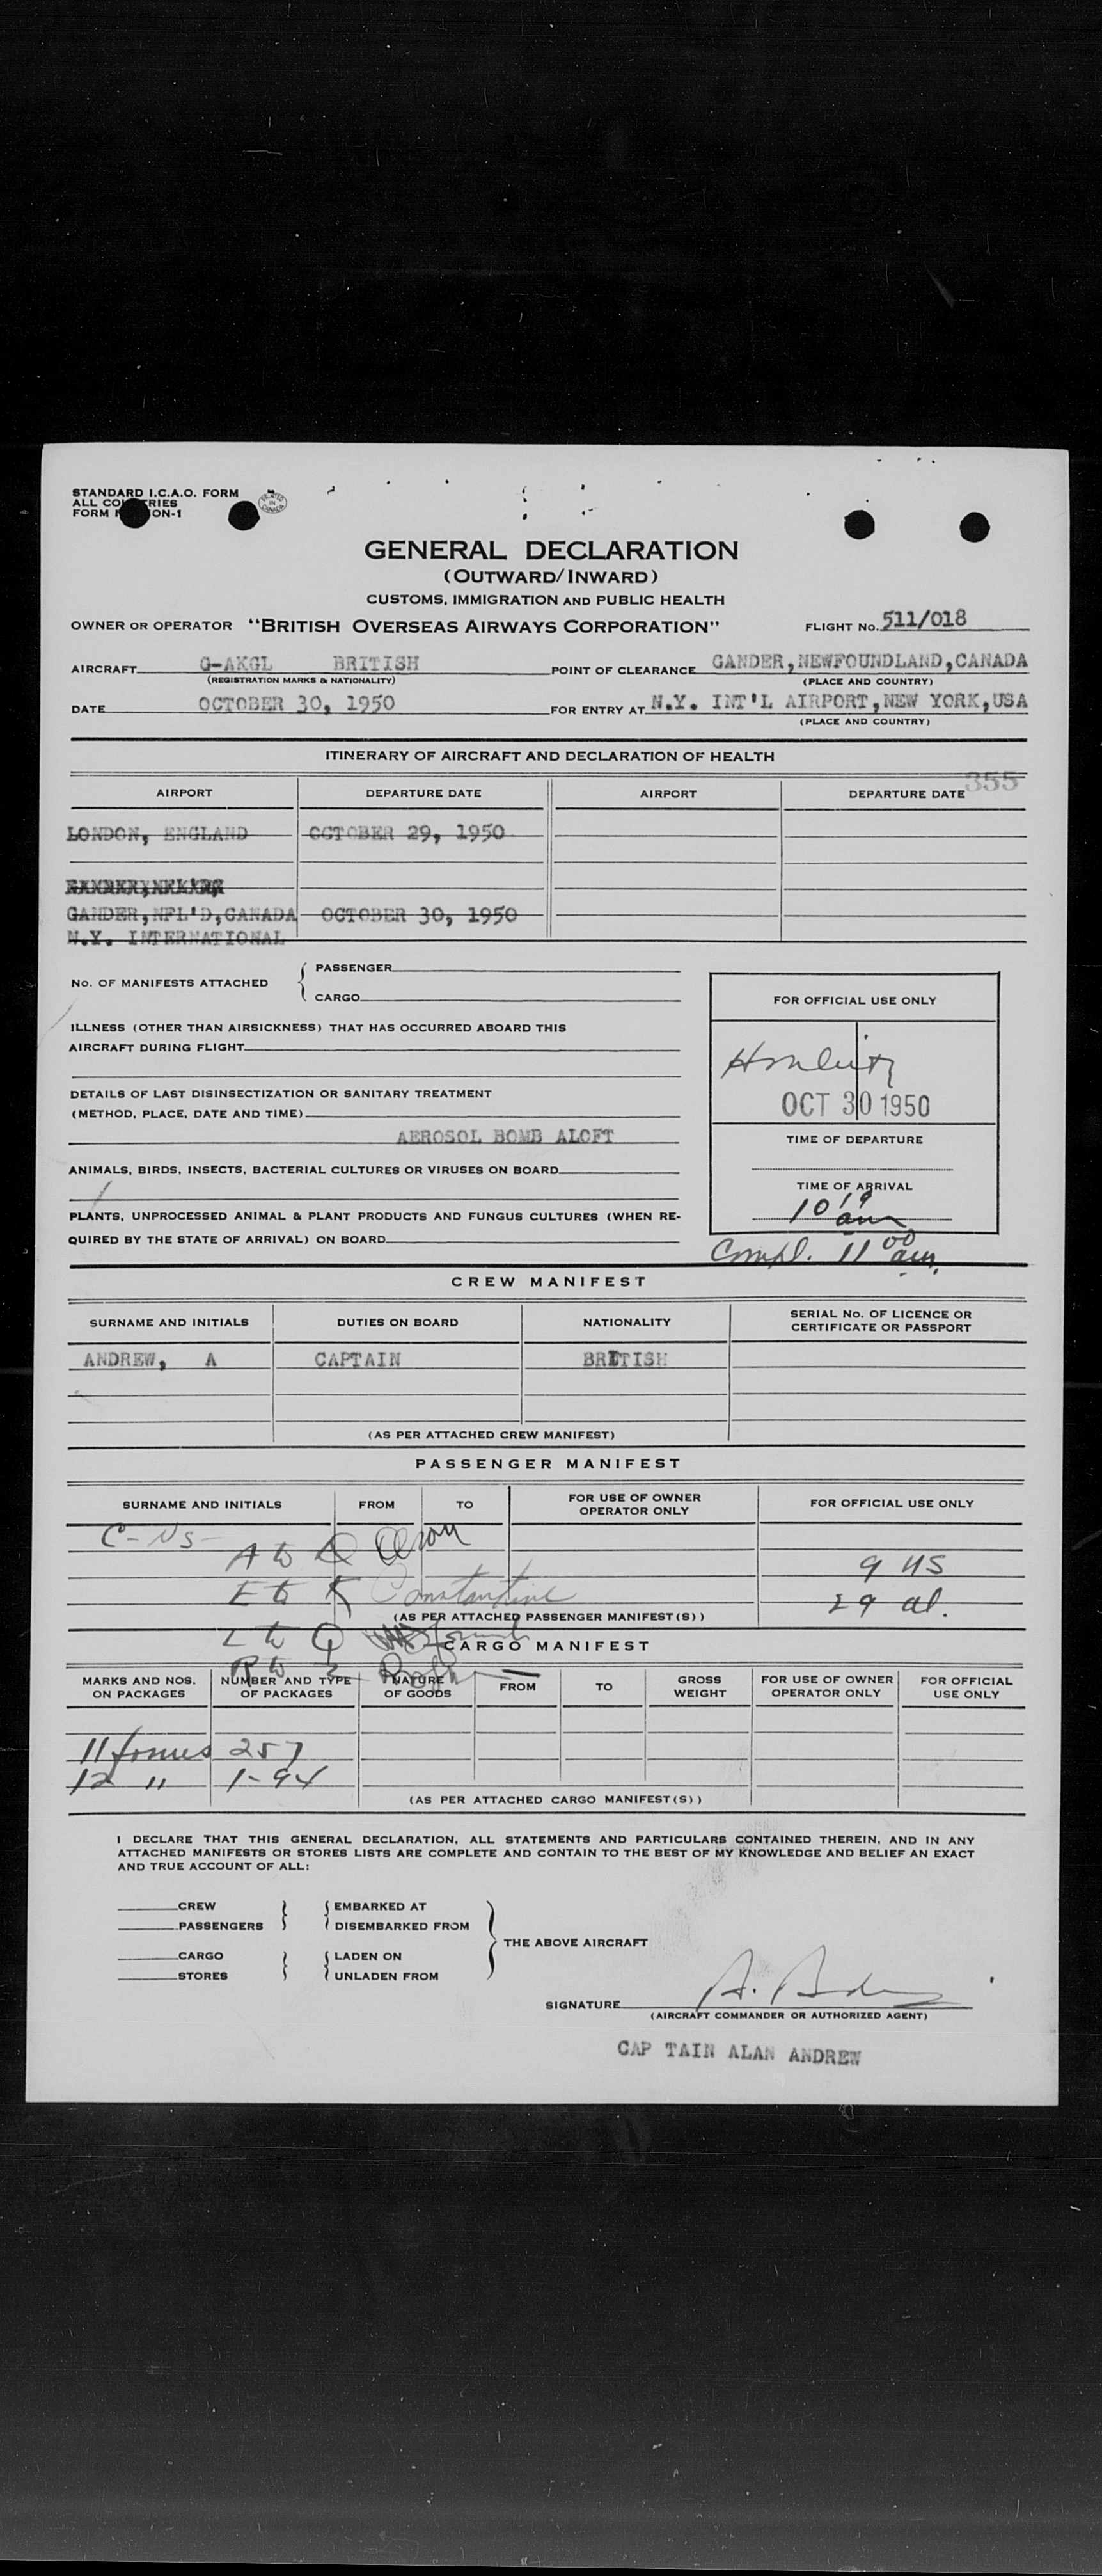 STANDARD I.C.A.O. FORM
ALL COUNTRIES
FORM ION-1
PRINTED IN CANADA
GENERAL DECLARATION
(OUTWARD/INWARD)
CUSTOMS, IMMIGRATION AND PUBLIC HEALTH
OWNER OR OPERATOR "BRITISH OVERSEAS AIRWAYS CORPORATION" FLIGHT No. 511/018
AIRCRAFT G-AKGL BRITISH POINT OF CLEARANCE GANDER,NEWFOUNDLAND,CANADA
(REGISTRATION MARKS & NATIONALITY) (PLACE AND COUNTRY)
DATE OCTOBER 30, 1950 FOR ENTRY AT N.Y. INT'L AIRPORT,NEW YORK,USA
(PLACE AND COUNTRY)
ITINERARY OF AIRCRAFT AND DECLARATION OF HEALTH
355
AIRPORT DEPARTURE DATE AIRPORT DEPARTURE DATE
LONDON, ENGLAND OCTOBER 29, 1950
GANDER,NFL'D,CANADA OCTOBER 30, 1950
N.Y. INTERNATIONAL
No. OF MANIFESTS ATTACHED { PASSENGER
CARGO
FOR OFFICIAL USE ONLY
ILLNESS (OTHER THAN AIRSICKNESS) THAT HAS OCCURRED ABOARD THIS
AIRCRAFT DURING FLIGHT
DETAILS OF LAST DISINSECTIZATION OR SANITARY TREATMENT
(METHOD, PLACE, DATE AND TIME)
OCT 30 1950
AEROSOL BOMB ALOFT
TIME OF DEPARTURE
ANIMALS, BIRDS, INSECTS, BACTERIAL CULTURES OR VIRUSES ON BOARD
TIME OF ARRIVAL
10 19 am
PLANTS, UNPROCESSED ANIMAL & PLANT PRODUCTS AND FUNGUS CULTURES (WHEN RE-
QUIRED BY THE STATE OF ARRIVAL) ON BOARD
Compl. 11 00 am.
CREW MANIFEST
SURNAME AND INITIALS DUTIES ON BOARD NATIONALITY SERIAL No. OF LICENCE OR
CERTIFICATE OR PASSPORT
ANDREW, A CAPTAIN BRITISH
(AS PER ATTACHED CREW MANIFEST)
PASSENGER MANIFEST
SURNAME AND INITIALS FROM TO FOR USE OF OWNER
OPERATOR ONLY FOR OFFICIAL USE ONLY
A to D
9 US
E to K Constantine
29 al.
(AS PER ATTACHED PASSENGER MANIFEST(S))
L to Q
CARGO MANIFEST
R to Z
MARKS AND NOS.
ON PACKAGES NUMBER AND TYPE
OF PACKAGES NATURE
OF GOODS FROM TO GROSS
WEIGHT FOR USE OF OWNER
OPERATOR ONLY FOR OFFICIAL
USE ONLY
11 forms 257
12 " 1-94
(AS PER ATTACHED CARGO MANIFEST(S))
I DECLARE THAT THIS GENERAL DECLARATION, ALL STATEMENTS AND PARTICULARS CONTAINED THEREIN, AND IN ANY
ATTACHED MANIFESTS OR STORES LISTS ARE COMPLETE AND CONTAIN TO THE BEST OF MY KNOWLEDGE AND BELIEF AN EXACT
AND TRUE ACCOUNT OF ALL:
CREW EMBARKED AT
PASSENGERS DISEMBARKED FROM
THE ABOVE AIRCRAFT
CARGO LADEN ON
STORES UNLADEN FROM
SIGNATURE
(AIRCRAFT COMMANDER OR AUTHORIZED AGENT)
CAP TAIN ALAN ANDREW